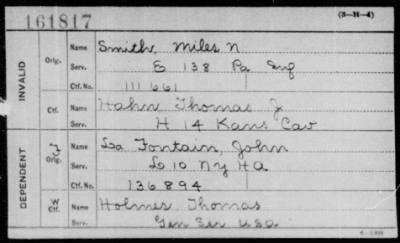 161817 (3-H-4)
INVALID
Orig. Name Smith, Miles N
Serv. E 138 Pa Inf
Ctf. No. 111 661
Ctf. Name Hahn Thomas J
Serv. H 14 Kans Cav
DEPENDENT
Orig. Name La Fontain, John
Serv. Lo 10 NY HA
Ctf. No. 136894
W Ctf. Name Holmes Thomas
Serv. Gen Ser USA